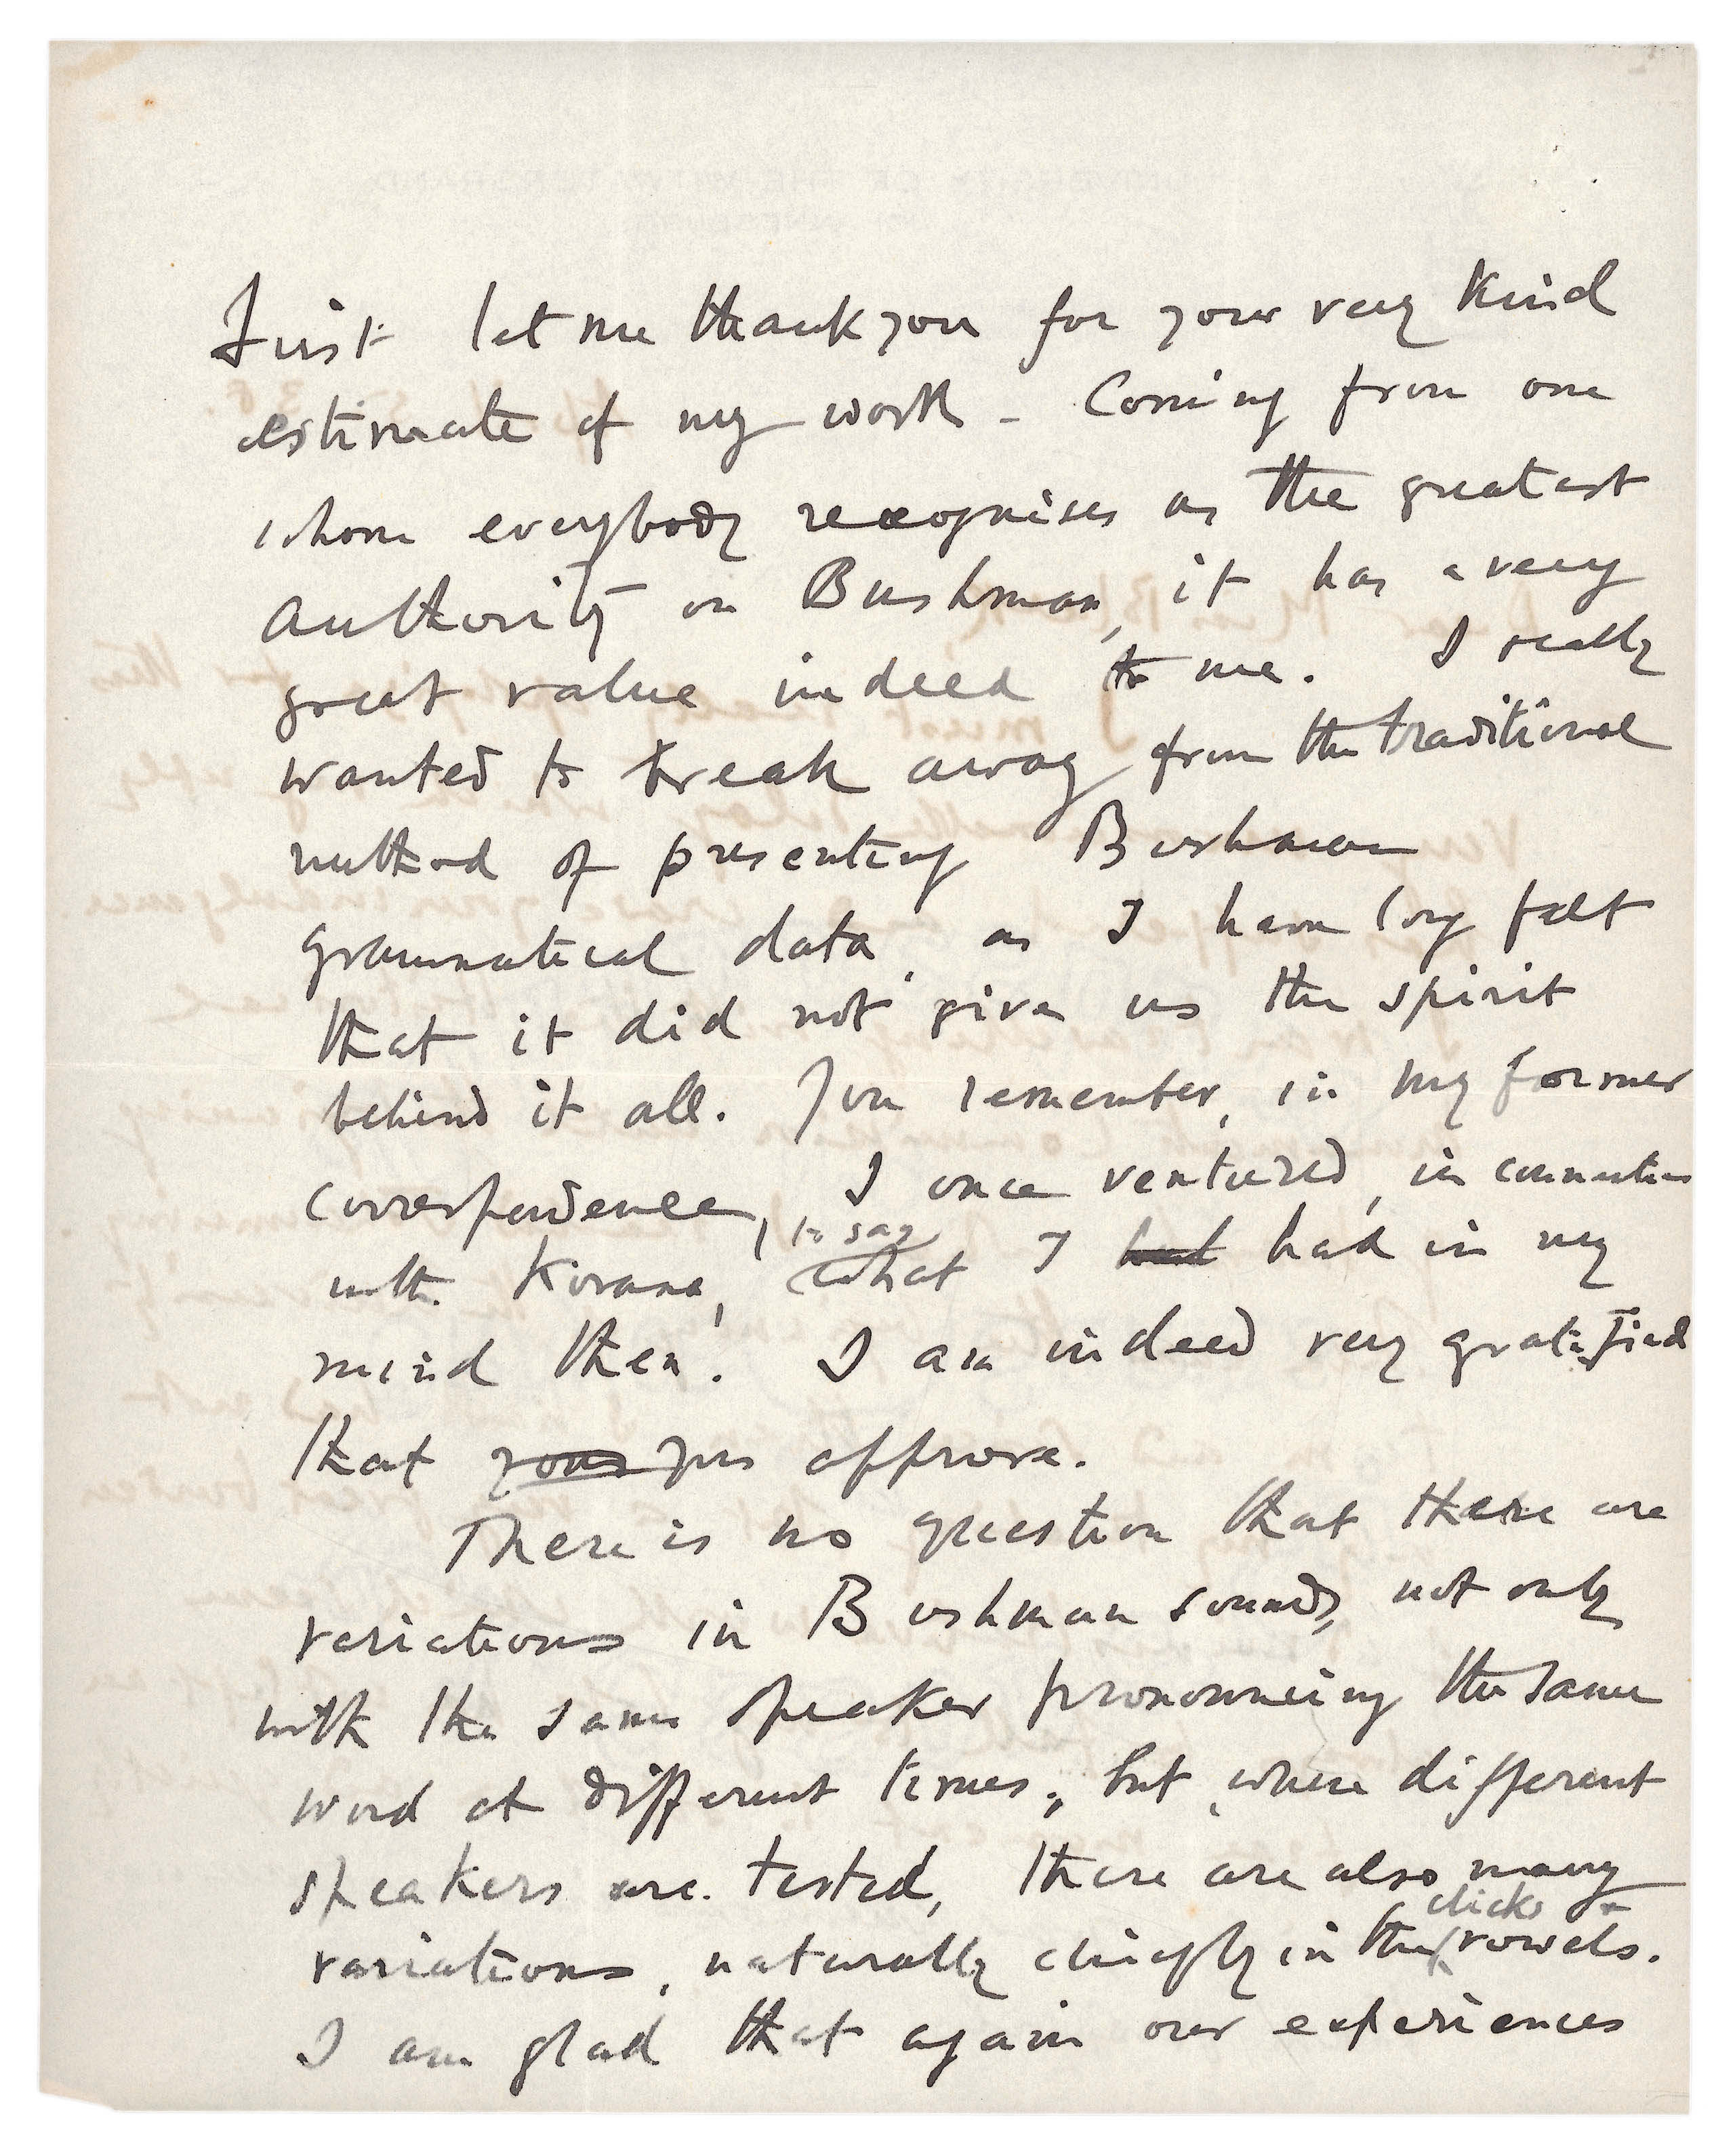 First let me thank you for your very kind
estimate of my work - Coming from one
whom everybody recognises as the greatest
authority on Bushman, it has a very
great value indeed to me. I really
wanted to break away from the traditional
method of presenting Bushman
grammatical data, as I have long felt
that it did not give us the spirit
behind it all. You remember, in my former
correspondence, I once ventured, in connection
with Korana, to say what I had had in my
mind then. I am indeed very gratified
that your you approve.
There is no question that there are
variations in Bushman sounds, not only
with the same speaker pronouncing the same
word at different times, but, where different
speakers are tested, there are also many
variations, naturally chiefly in the clicks & vowels.
I am glad that again our experiences